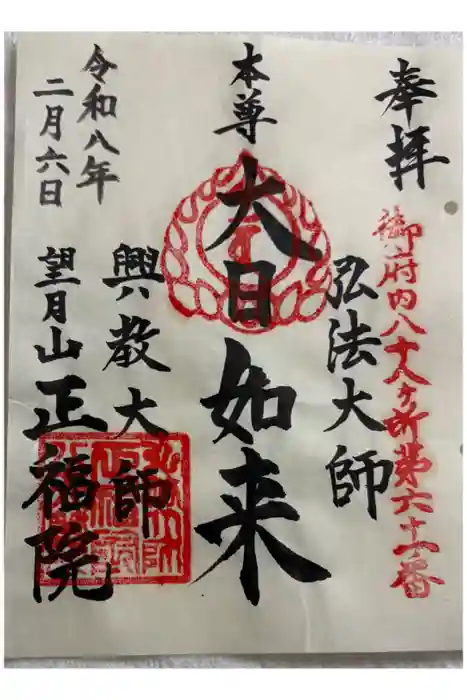 奉拝
御府内八十八ケ所第六十一番
弘法大師
本尊
大日如来
興教大師
望月山正福院
令和八年
二月六日